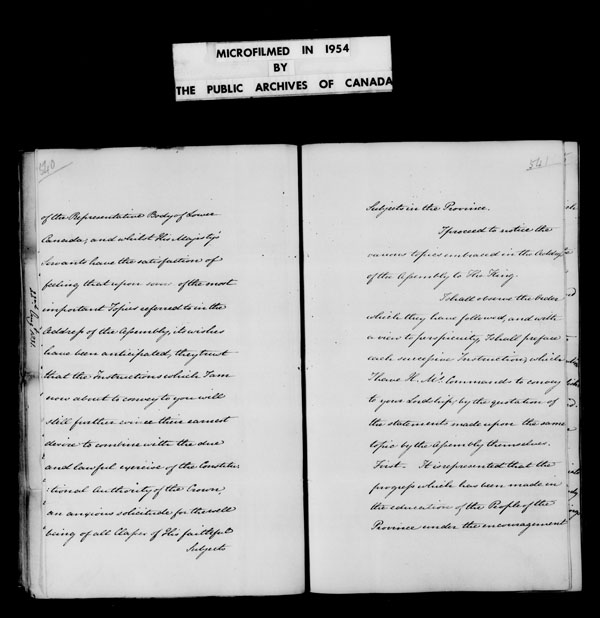 MICROFILMED IN 1954
BY
THE PUBLIC ARCHIVES OF CANADA
540
of the Representative Body of Lower
Canada; and whilst His Majesty's
Servants have the satisfaction of
feeling that upon some of the most
important Topics referred to in the
Address of the Assembly, its wishes
have been anticipated, they trust
that the Instructions which I am
now about to convey to you will
still further evince their earnest
desire to combine with the due
and lawful exercise of the Constitu
tional Authority of the Crown,
an anxious solicitude for the well
being of all Classes of His faithful
Subjects
541
Subjects in the Province.
I proceed to notice the
various topics embraced in the Address
of the Assembly to The King.
I shall observe the order
which they have followed, and with
a view to perspicuity, I shall preface
each successive Instruction, which
I have H. My's Commands to convey
to your Lordship, by the quotation of
the statements made upon the same
topic by the Assembly themselves.
First. It is represented that the
progress which has been made in
the education of the People of the
Province under the encouragement